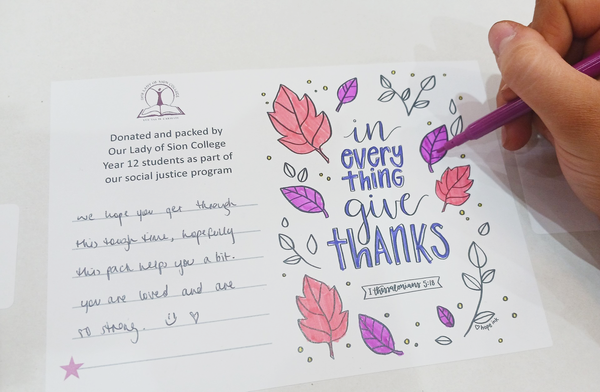 Donated and packed by
Our Lady of Sion College
Year 12 students as part of
our social justice program
we hope you get through
this tough time, hopefully
this pack helps you a bit.
you are loved and are
so strong.
in
every
thing
give
thANKS
1 thessalonians 5:18